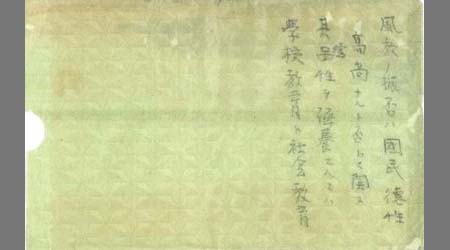 風教ノ振否ハ國民徳性
高尚ナルト否トニ関ス
其品性ヲ涵養スルハ
学校教育ト社会教育